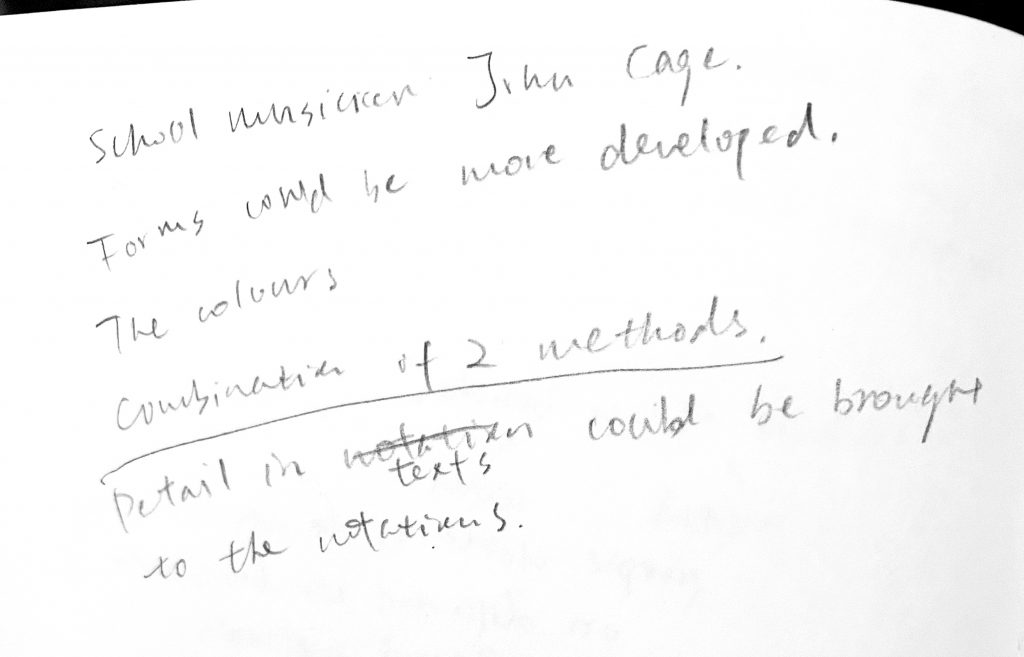 School musician John Cage.
Forms could be more developed.
The colours
Combination of 2 methods.
Detail in notation could be brought
texts
to the notations.